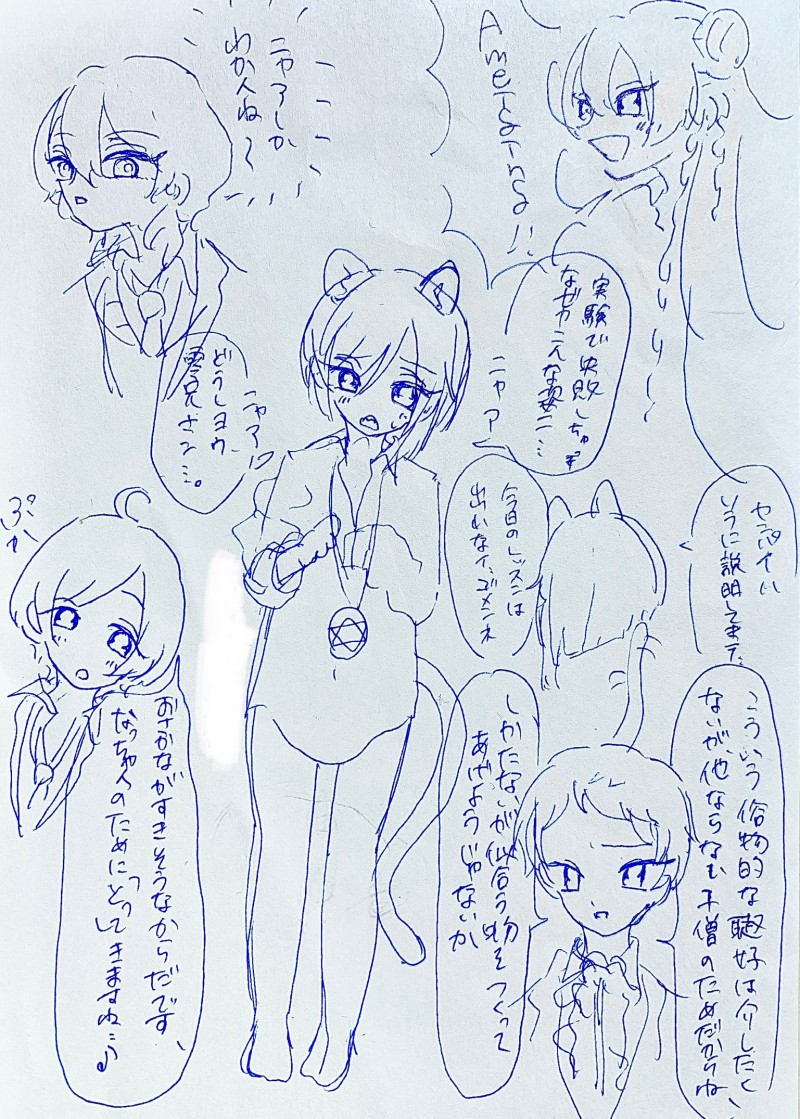 Amazing!!
ニャアしか
わかんね〜
実験で失敗しちゃって
なぜかこんな姿に…
ニャア
ニャア!?
どうしヨウ、
零兄さン…。
今日のレッスンは
出れなイ、ゴメンネ
センパイい
いうに説明してきまス、
ぷか
おさかながすきそうなからだです、
なっちゃんのためにとってきますね…♪
こういう俗物的な趣好は介したく
ないが、他ならなむ子僧のためだからね、
しかたないが似合う物をつくって
あげようじゃないか